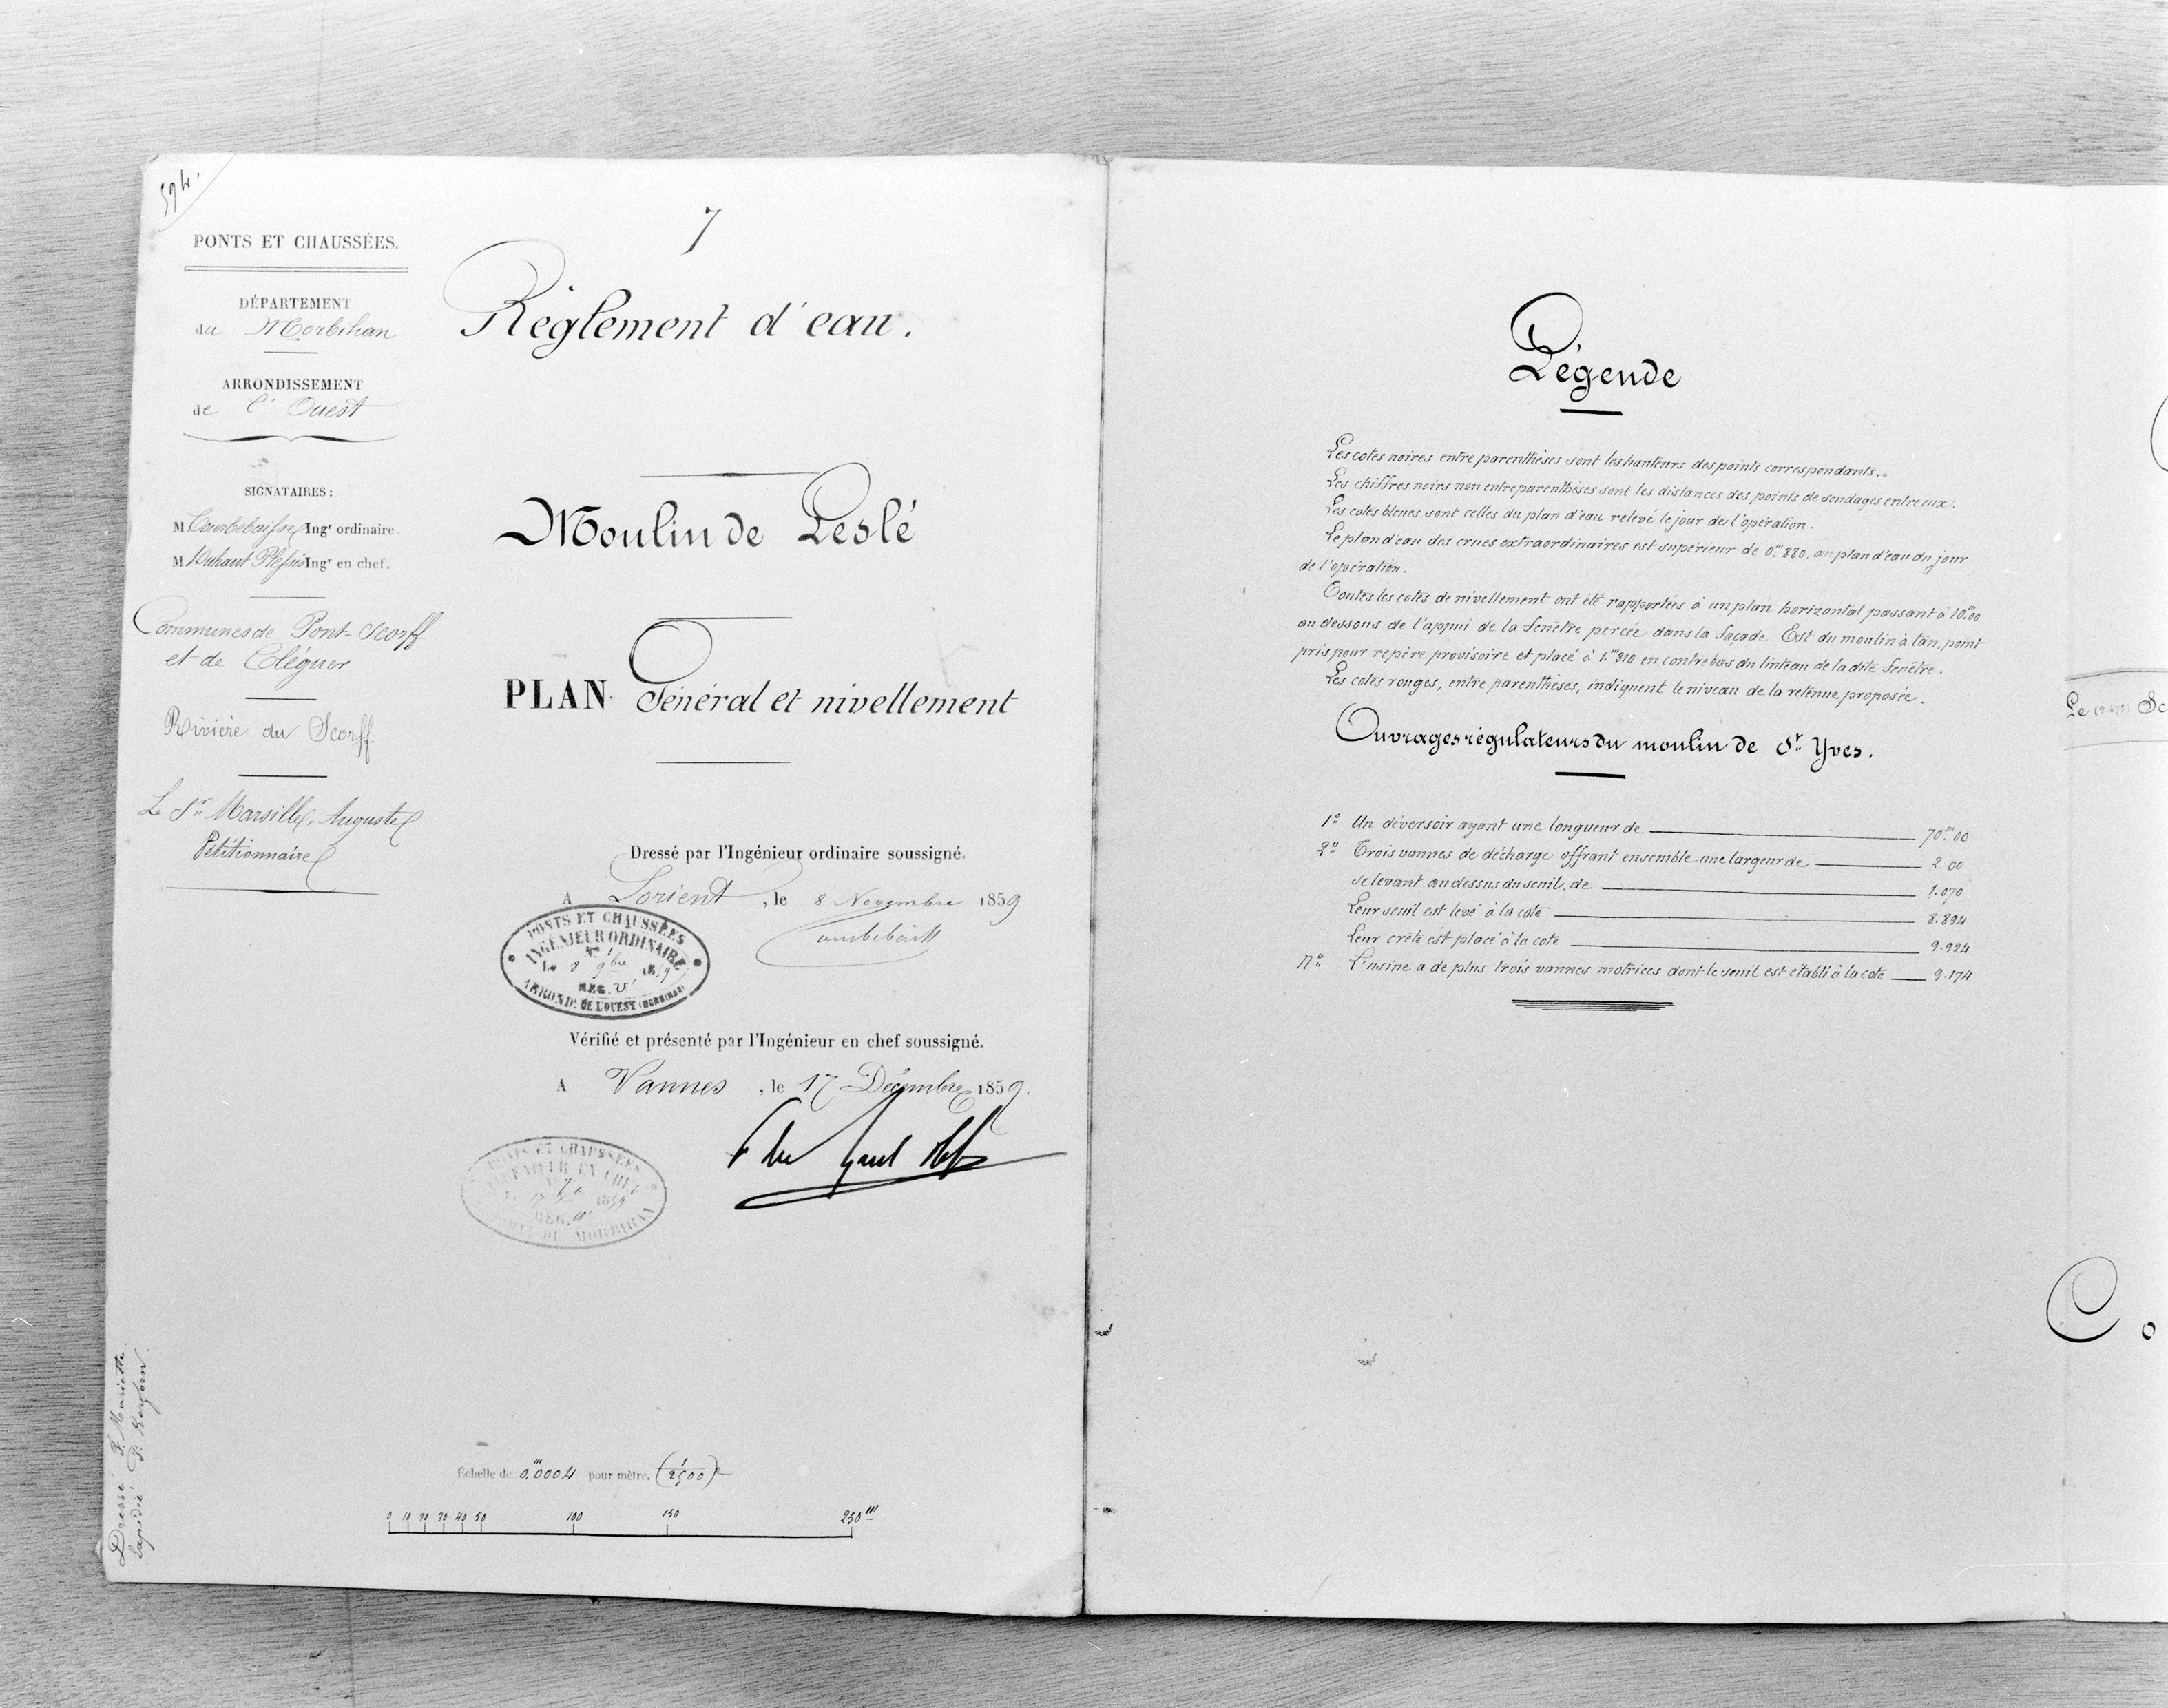 594.
PONTS ET CHAUSSÉES.
DÉPARTEMENT
du Morbihan
ARRONDISSEMENT
de l'Ouest
SIGNATAIRES :
M Courbebaisse Ingr ordinaire.
M Duhaut Plessis Ingr en chef.
Communes de Pont-Scorff
et de Cléguer
Rivière du Scorff.
Le Sr Marsille, Auguste
Pétitionnaire
7
Règlement d'eau.
Moulin de Leslé
PLAN Général et nivellement
Dressé par l'Ingénieur ordinaire soussigné.
A Lorient, le 8 Novembre 1859
PONTS ET CHAUSSÉES
INGÉNIEUR ORDINAIRE
Le 8 9bre 1859
REG. V
ARROND. DE L'OUEST (MORBIHAN)
Vérifié et présenté par l'Ingénieur en chef soussigné.
A Vannes, le 17 Décembre 1859.
PONTS ET CHAUSSÉES
INGÉNIEUR EN CHEF
1859
REG.
DU MORBIHAN
Dressé
Echelle de 0,m0004 pour mètre. (1/2500)e
0 10 20 30 40 50 100 150 250m
Légende
Les cotes noires entre parenthèses sont les hauteurs des points correspondants.
Les chiffres noirs non entre parenthèses sont les distances des points de sondages entre eux.
Les cotes bleues sont celles du plan d'eau relevé le jour de l'opération.
Le plan d'eau des crues extraordinaires est supérieur de 0.m880, au plan d'eau du jour
de l'opération.
Toutes les cotes de nivellement ont été rapportées à un plan horizontal passant à 10.m00
au dessous de l'appui de la fenêtre percée dans la façade Est du moulin à tan, point
pris pour repère provisoire et placé à 1.m310 en contrebas du linteau de la dite fenêtre.
Les cotes rouges, entre parenthèses, indiquent le niveau de la retenue proposée.
Ouvrages régulateurs du moulin de St Yves.
1o Un déversoir ayant une longueur de 70.m00
2o Trois vannes de décharge offrant ensemble une largeur de 2.00
se levant au dessus du seuil, de 1.070
Leur seuil est levé à la cote 8.894
Leur crête est placé à la cote 9.924
Na L'usine a de plus trois vannes motrices dont le seuil est établi à la cote 9.174
Le Sc
Co